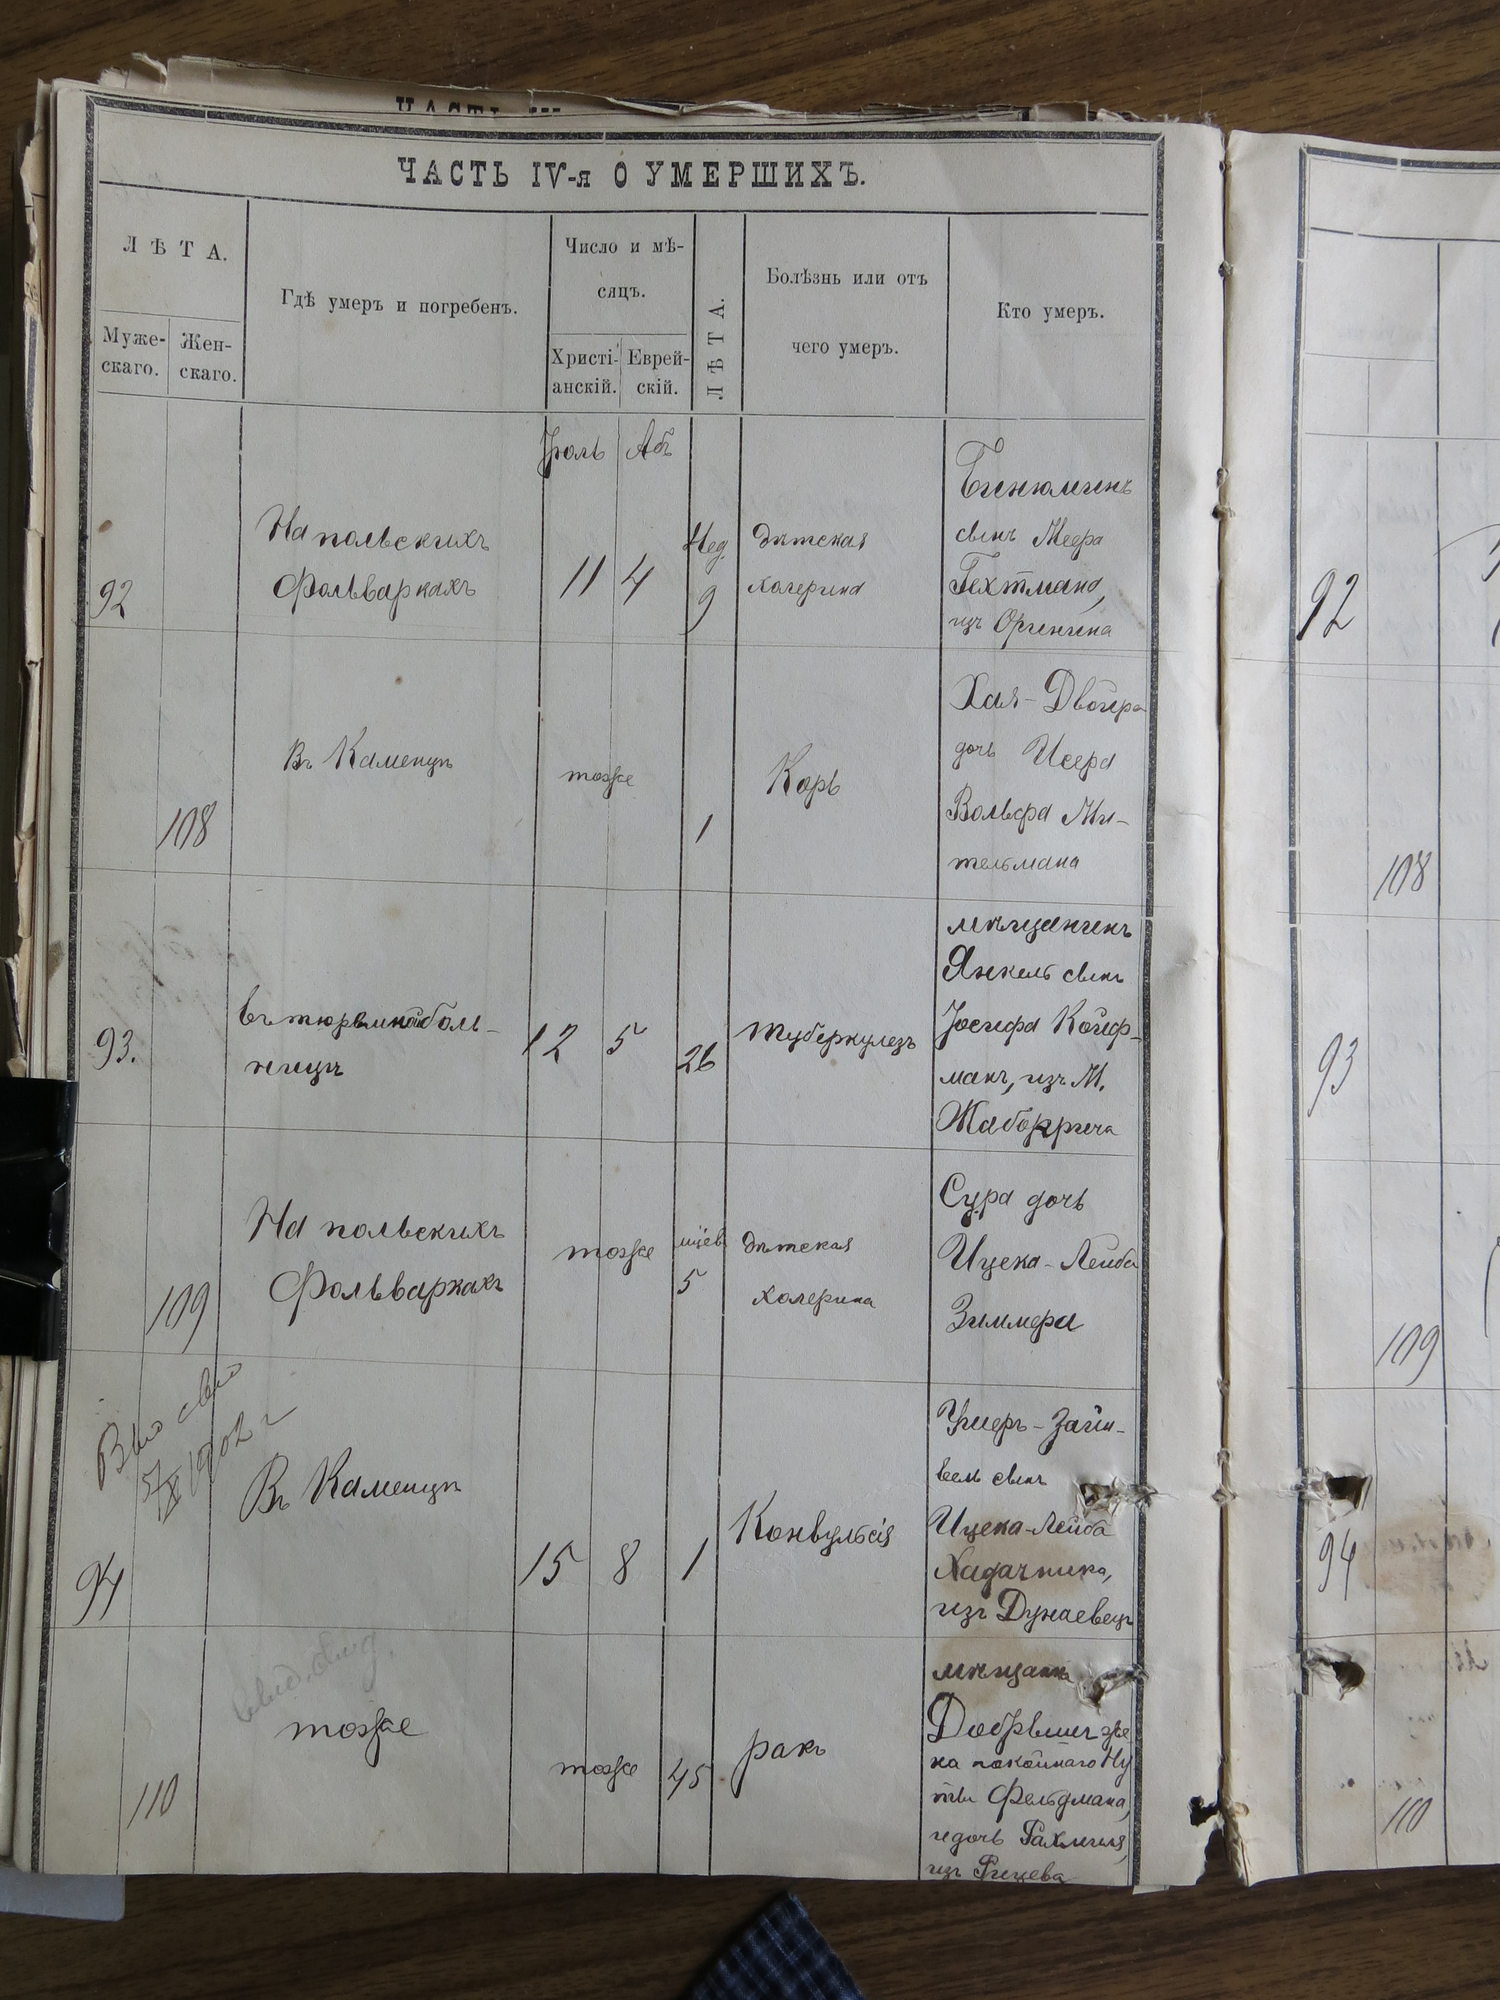 ЧАСТЬ IV-я О УМЕРШИХЪ.
ЛѢТА.
Муже-
скаго.
Жен-
скаго.
Гдѣ умеръ и погребенъ.
Число и мѣ-
сяцъ.
Христі-
анскій.
Еврей-
скій.
ЛѢТА.
Болѣзнь или отъ
чего умеръ.
Кто умеръ.
Іюль
Абъ
92
На польскихъ
Фольваркахъ
11
4
Нед.
9
Дѣтская
холерина
Бинюминъ
сынъ Меера
Гехтмана,
изъ Оринина
108
Въ Каменцѣ
тоже
1
Корь
Хая-Двойра
дочь Исера
Вольфа Ми-
тельмана
93.
Въ тюремной боль-
ницѣ
12
5
26
туберкулезъ
мѣщанинъ
Янкель сынъ
Іосифа Койф-
манъ, изъ М.
Жабокрича
109
На польскихъ
Фольваркахъ
тоже
мѣсяц
5
Дѣтская
холерина
Сура дочь
Ицека-Лейба
Зиммера
1902 г
94
Въ Каменцѣ
15
8
1
Конвульсія
Ушеръ-Зайн-
вель сынъ
Ицека-Лейба
изъ Дунаевецъ
110
тоже
тоже
45
ракъ
мѣщанк
Добрышъ же
на покойнаго Ну
Фельдмана,
и дочь Рахмиля,
92
108
93
109
94
110